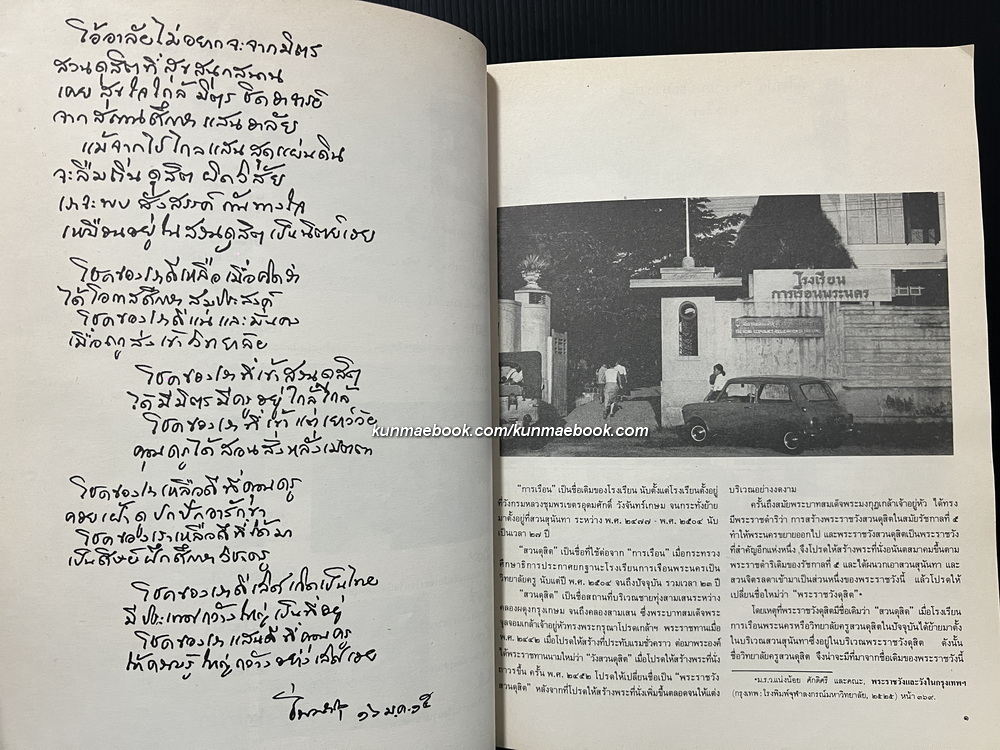 โอ้อาลัยไม่อยากจะจากมิตร
สวนดุสิตที่สุขสนุกสนาน
เคยสุขใจใกล้มิตรชิดอาจารย์
จากสถานศึกษาแสนอาลัย
แม้จากไปไกลแสนสุดแผ่นดิน
จะลืมถิ่นดุสิตผิดวิสัย
เราจะพบสังสรรค์กันทางใจ
เหมือนอยู่ในสวนดุสิตเป็นนิตย์เอย
โชคของเราดีเหลือเมื่อคิดว่า
ได้โอกาสศึกษาสมประสงค์
โชคของเราดีแน่และมั่นคง
เมื่อครูส่งเข้าวิทยาลัย
โชคของเราที่เข้าสวนดุสิต
ได้มีมิตรมีครูอยู่ใกล้ใกล้
โชคของเราที่เข้าแต่เยาว์วัย
คุณครูได้สอนสั่งหลั่งเมตตา
โชคของเราเหลือดีที่คุณครู
คอยเฝ้าดูปกปักอารักขา
โชคของเราเหลือดีที่ได้มา
เป็นศิษย์ฝึกศึกษาวิชาครู
โชคของเราที่เกิดเป็นไทย
มีประเทศกว้างใหญ่เป็นที่อยู่
โชคของเราแสนดีที่คุณครู
ให้ความรู้ใหญ่กว้างอย่าง
๑๖ ม.ค. ๑๕
โรงเรียน
การเรือนพระนคร
kunmaebook.com/kunmaebook.com
"การเรือน" เป็นชื่อเดิมของโรงเรียน นับตั้งแต่โรงเรียนตั้งอยู่
ที่วังกรมหลวงชุมพรเขตรอุดมศักดิ์ วังจันทร์เกษม จนกระทั่งย้าย
มาตั้งอยู่ที่สวนสุนันทา ระหว่าง พ.ศ. ๒๔๗๗ - พ.ศ. ๒๕๐๔ นับ
เป็นเวลา ๒๗ ปี
"สวนดุสิต" เป็นชื่อที่ใช้ต่อจาก "การเรือน" เมื่อกระทรวง
ศึกษาธิการประกาศยกฐานะโรงเรียนการเรือนพระนครเป็น
วิทยาลัยครู นับแต่ปี พ.ศ. ๒๕๐๔ จนถึงปัจจุบัน รวมเวลา ๒๓ ปี
"สวนดุสิต" เป็นชื่อสถานที่บริเวณชายทุ่งสามเสนระหว่าง
คลองผดุงกรุงเกษม จนถึงคลองสามเสน ซึ่งพระบาทสมเด็จพระ
จุลจอมเกล้าเจ้าอยู่หัวทรงพระกรุณาโปรดเกล้าฯ พระราชทานเมื่อ
พ.ศ. ๒๔๔๒ เมื่อโปรดให้สร้างที่ประทับแรมชั่วคราว ต่อมาพระองค์
ได้พระราชทานนามใหม่ว่า "วังสวนดุสิต" เมื่อโปรดให้สร้างพระที่นั่ง
ถาวรขึ้น ครั้น พ.ศ. ๒๔๕๒ โปรดให้เปลี่ยนชื่อเป็น "พระราชวัง
สวนดุสิต" หลังจากที่โปรดให้สร้างพระที่นั่งเพิ่มขึ้นตลอดจนให้แต่ง
บริเวณอย่างงดงาม
ครั้นถึงสมัยพระบาทสมเด็จพระมงกุฎเกล้าเจ้าอยู่หัว ได้ทรง
มีพระราชดำริว่า การสร้างพระราชวังสวนดุสิตในสมัยรัชกาลที่ ๕
ทำให้พระนครขยายออกไป และพระราชวังสวนดุสิตเป็นพระราชวัง
ที่สำคัญอีกแห่งหนึ่ง จึงโปรดให้สร้างพระที่นั่งอนันตสมาคมขึ้นตาม
พระราชดำริเดิมของรัชกาลที่ ๕ และได้ผนวกเอาสวนสุนันทา และ
สวนจิตรลดาเข้ามาเป็นส่วนหนึ่งของพระราชวังนี้ แล้วโปรดให้
เปลี่ยนชื่อใหม่ว่า "พระราชวังดุสิต"*
โดยเหตุที่พระราชวังดุสิตมีชื่อเดิมว่า "สวนดุสิต" เมื่อโรงเรียน
การเรือนพระนครหรือวิทยาลัยครูสวนดุสิตในปัจจุบันได้ย้ายมาตั้ง
ในบริเวณสวนสุนันทาซึ่งอยู่ในบริเวณพระราชวังดุสิต ดังนั้น
ชื่อวิทยาลัยครูสวนดุสิต จึงน่าจะมีที่มาจากชื่อเดิมของพระราชวังนี้
*ม.ร.ว.แน่งน้อย ศักดิ์ศรี และคณะ, พระราชวังและวังในกรุงเทพฯ
(กรุงเทพ : โรงพิมพ์จุฬาลงกรณ์มหาวิทยาลัย, ๒๕๒๕) หน้า ๓๖๙.
๑